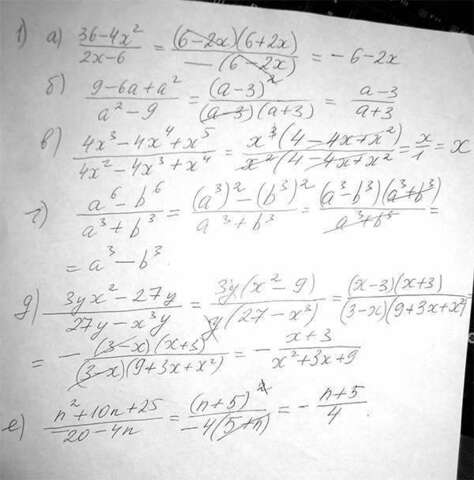 1) а) (36-4x²)/(2x-6) = ((6-2x)(6+2x))/(-(6-2x)) = -6-2x
б) (9-6a+a²)/(a²-9) = (a-3)²/((a-3)(a+3)) = (a-3)/(a+3)
в) (4x³-4x⁴+x⁵)/(4x²-4x³+x⁴) = (x³(4-4x+x²))/(x²(4-4x+x²) = x/1 = x
г) (a⁶-b⁶)/(a³+b³) = ((a³)²-(b³)²)/(a³+b³) = ((a³-b³)(a³+b³))/(a³+b³) =
= a³-b³
д) (3yx²-27y)/(27y-x³y) = (3y(x²-9))/(y(27-x³)) = ((x-3)(x+3))/((3-x)(9+3x+x²))
= -((3-x)(x+3))/((3-x)(9+3x+x²)) = -(x+3)/(x²+3x+9)
е) (n²+10n+25)/(-20-4n) = (n+5)²/(-4(5+n)) = -(n+5)/4